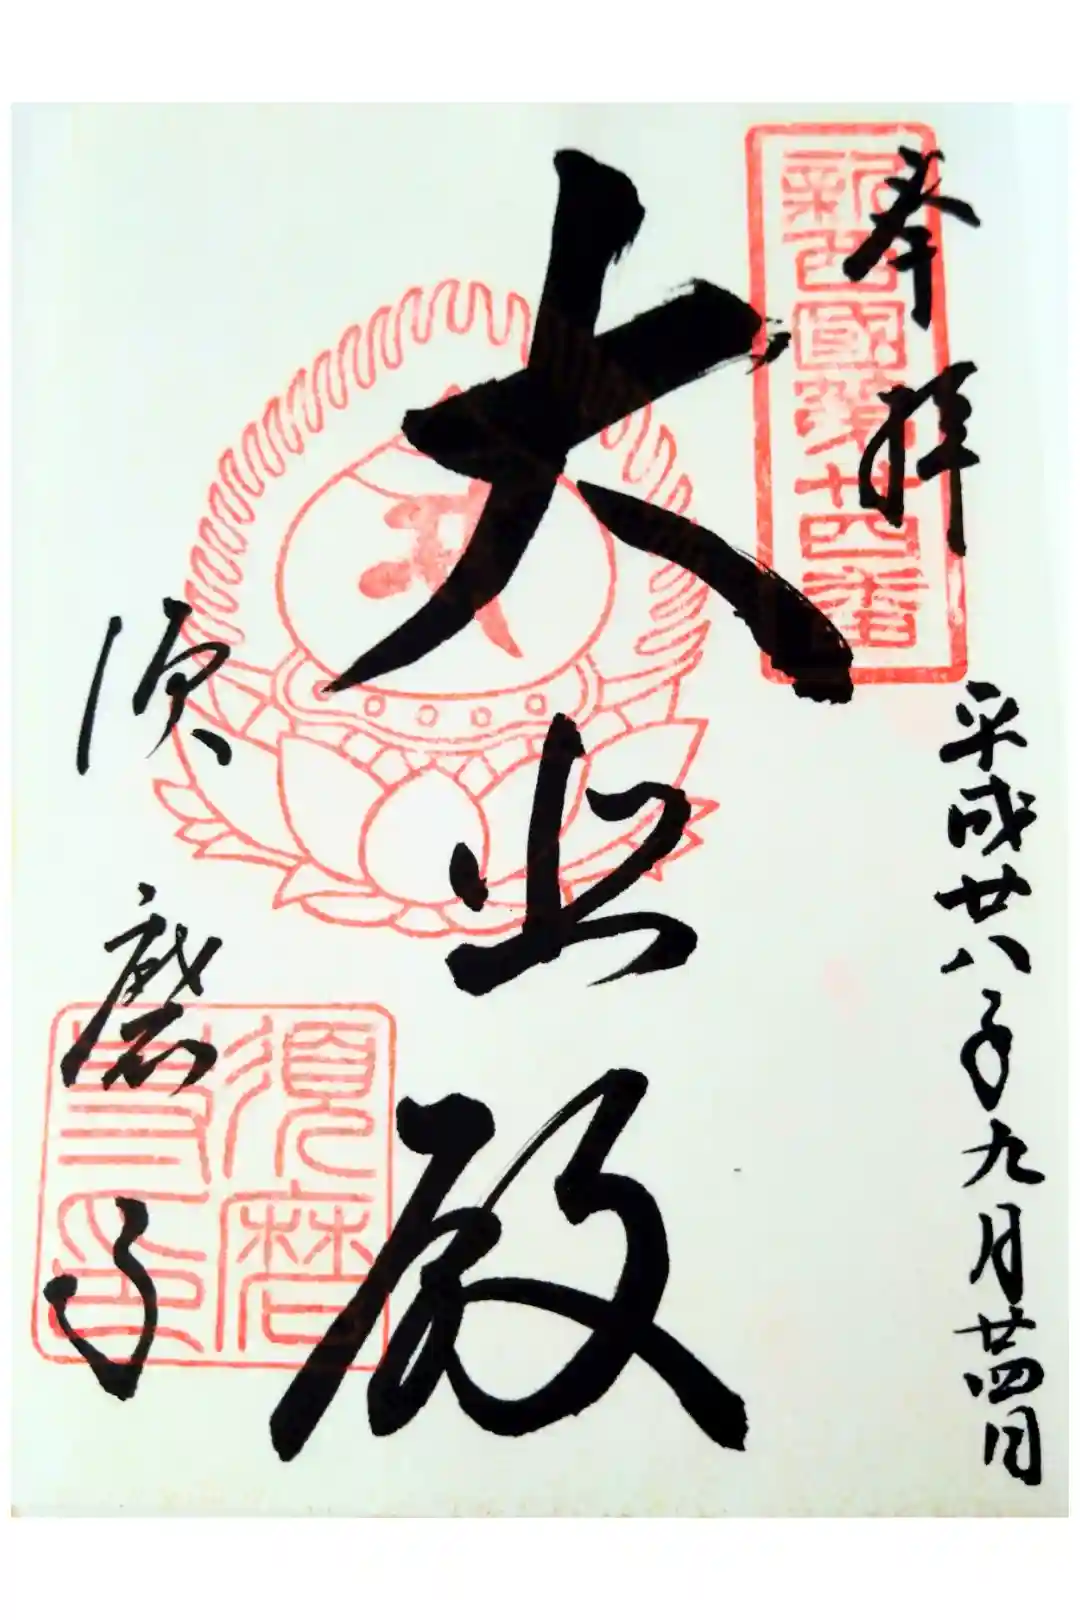 奉拝
新西國第廿四番
平成廿八年九月廿四日
大悲殿
須磨寺
須磨寺印